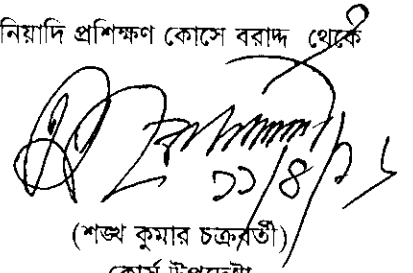 নিয়াদি প্রশিক্ষণ কোর্সে বরাদ্দ থেকে
১১/৪/১৬
(শঙ্খ কুমার চক্রবর্তী)
কোর্স উপদেষ্টা